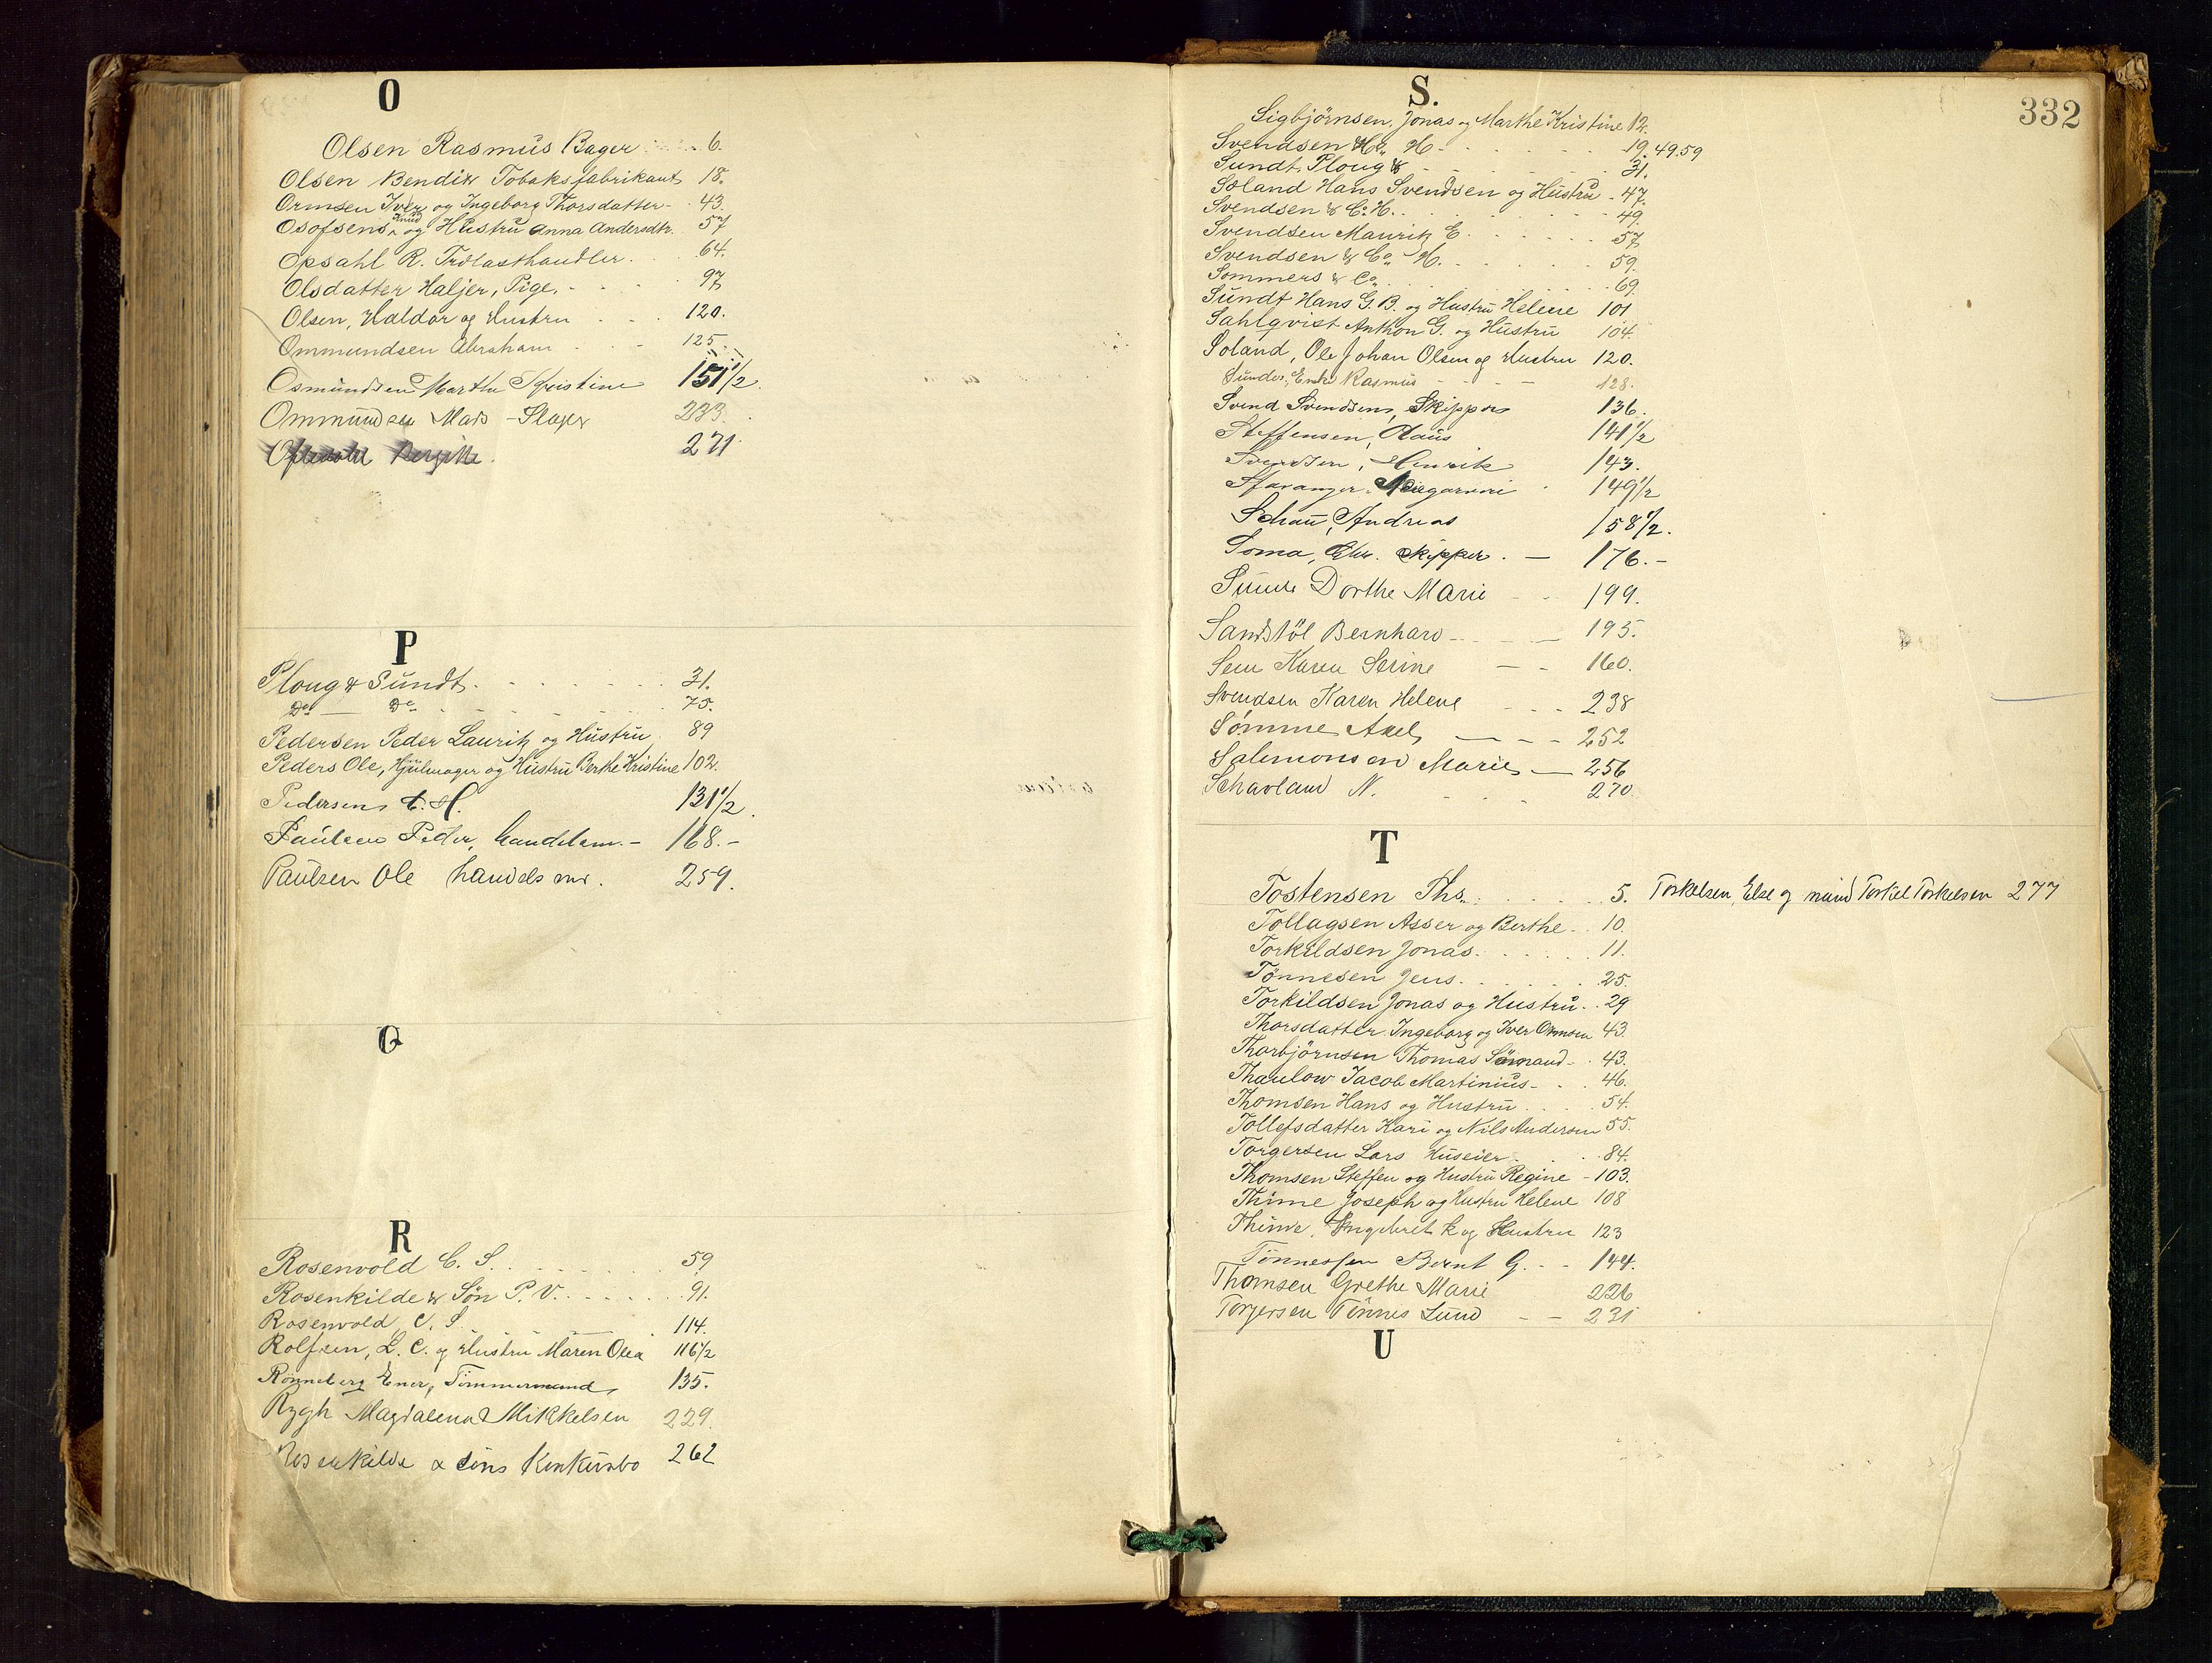 O
Olsen Rasmus Bager 6.
Olsen Bendik Tobaksfabrikant 18.
Ormsen Iver og Ingeborg Thorsdatter 43.
Osofsens Knud og Hustru Anna Andersdtr. 57
Opsahl R. Trælasthandler. 64.
Olsdatter Haljer, Pige. 97
Olsen, Haldor og Hustru 120.
Ommundsen Abraham 125.
Osmundsen Marthe Kristine 151 1/2.
Ommundsen Mads - Slager 233.
Bergitte 271.
P
Ploug & Sundt. 31.
Do — Do 75.
Pedersen Peder Lauritz og Hustru 89
Peders Ole, Hjulmager og Hustru Berthe Kristine 102.
Pedersen, C. H. 131 1/2.
Paulsen Peder, handelsm. - 168.-
Paulsen Ole handelsm. 259.
Q
R
Rosenvold C. S. 59
Rosenkilde & Søn P. V. 91.
Rosenvold, C. S. 114.
Rolfsen, L. C. og Hustru Maren Olea 116 1/2
Rønneberg Ener, Tømmermand, 135.
Rygh Magdalena Mikkelsen 229.
Rosenkilde & Søns Konkursbo 262
S.
332
Sigbjörnsen, Jonas og Marthe Kristine 12.
Svendsen & Co. H. 19. 49. 59
Sundt, Ploug & 31.
Søland Hans Svendsen og Hustru 47.
Svendsen & Co. H. 49.
Svendsen Mauritz E. 57.
Svendsen & Co. H. 59.
Sommers & Co. 69.
Sundt Hans G. B. og Hustru Helene 101
Sahlqvist Anthon G. og Hustru 104.
Soland, Ole Johan Olsen og Hustru 120.
Sunde, Enke Rasmus 128.
Svend Svendsen, Skipper 136.
Steffensen, Claus 141 1/2
Svendsen, Henrik 143.
Stavanger 149 1/2
Schau, Andreas 158 1/2.
Soma, Chr. Skipper. — 176.-
Sunde Dorthe Marie 199.
Sandstöl Bernhard 195.
Sem Karen Serine 160.
Svendsen Karen Helene 238
Sømme Axel 252
Salemonsen Marie — 256
Schavland N. 270
T
Tostensen Ths. 5. Torkelsen, Else og mand Torkel Torkelsen 277
Tollagsen Asser og Berthe 10.
Torkildsen Jonas. 11.
Tønnesen Jens. 25.
Torkildsen Jonas og Hustru 29
Thorsdatter Ingeborg og Iver Ormsen 43
Thorbjörnsen Thomas Sømand 43.
Thaulow Jacob Martinius 46.
Thomsen Hans og Hustru 54.
Tollefsdatter Kari og Nils Andersen 55.
Torgersen Lars Huseier. 84.
Thomsen Steffen og Hustru Regine - 103.
Thime Joseph og Hustru Helene 108
Thime, Engebret K og Hustru 123
Tönnessen Bernt G. 144.
Thomsen Grethe Marie 226
Torgersen Tönnes Lund 231
U